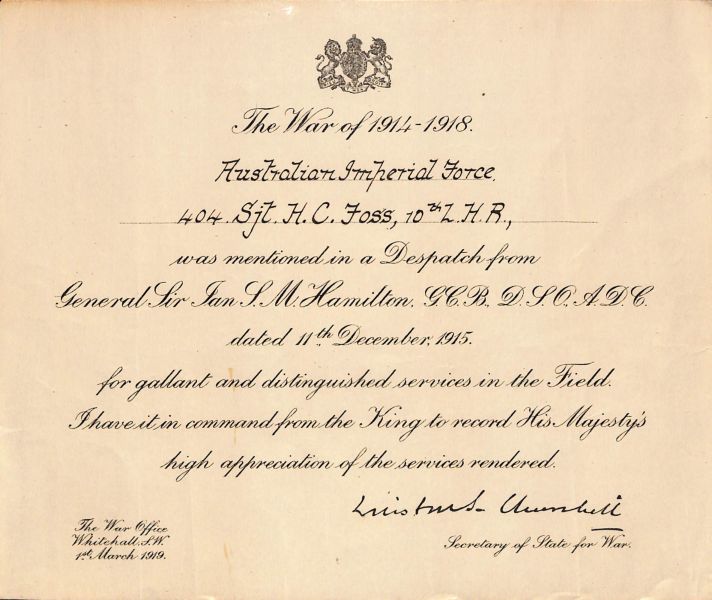 The War of 1914-1918.
Australian Imperial Force.
404. Sjt. H. C. Foss, 10th L.H.R.,
was mentioned in a Despatch from
General Sir Ian S. M. Hamilton, G.C.B., D.S.O., A.D.C.
dated 11th December, 1915.
for gallant and distinguished services in the Field.
I have it in command from the King to record His Majesty's
high appreciation of the services rendered.
Winston S. Churchill
Secretary of State for War.
The War Office
Whitehall, S.W.
1st March 1919.